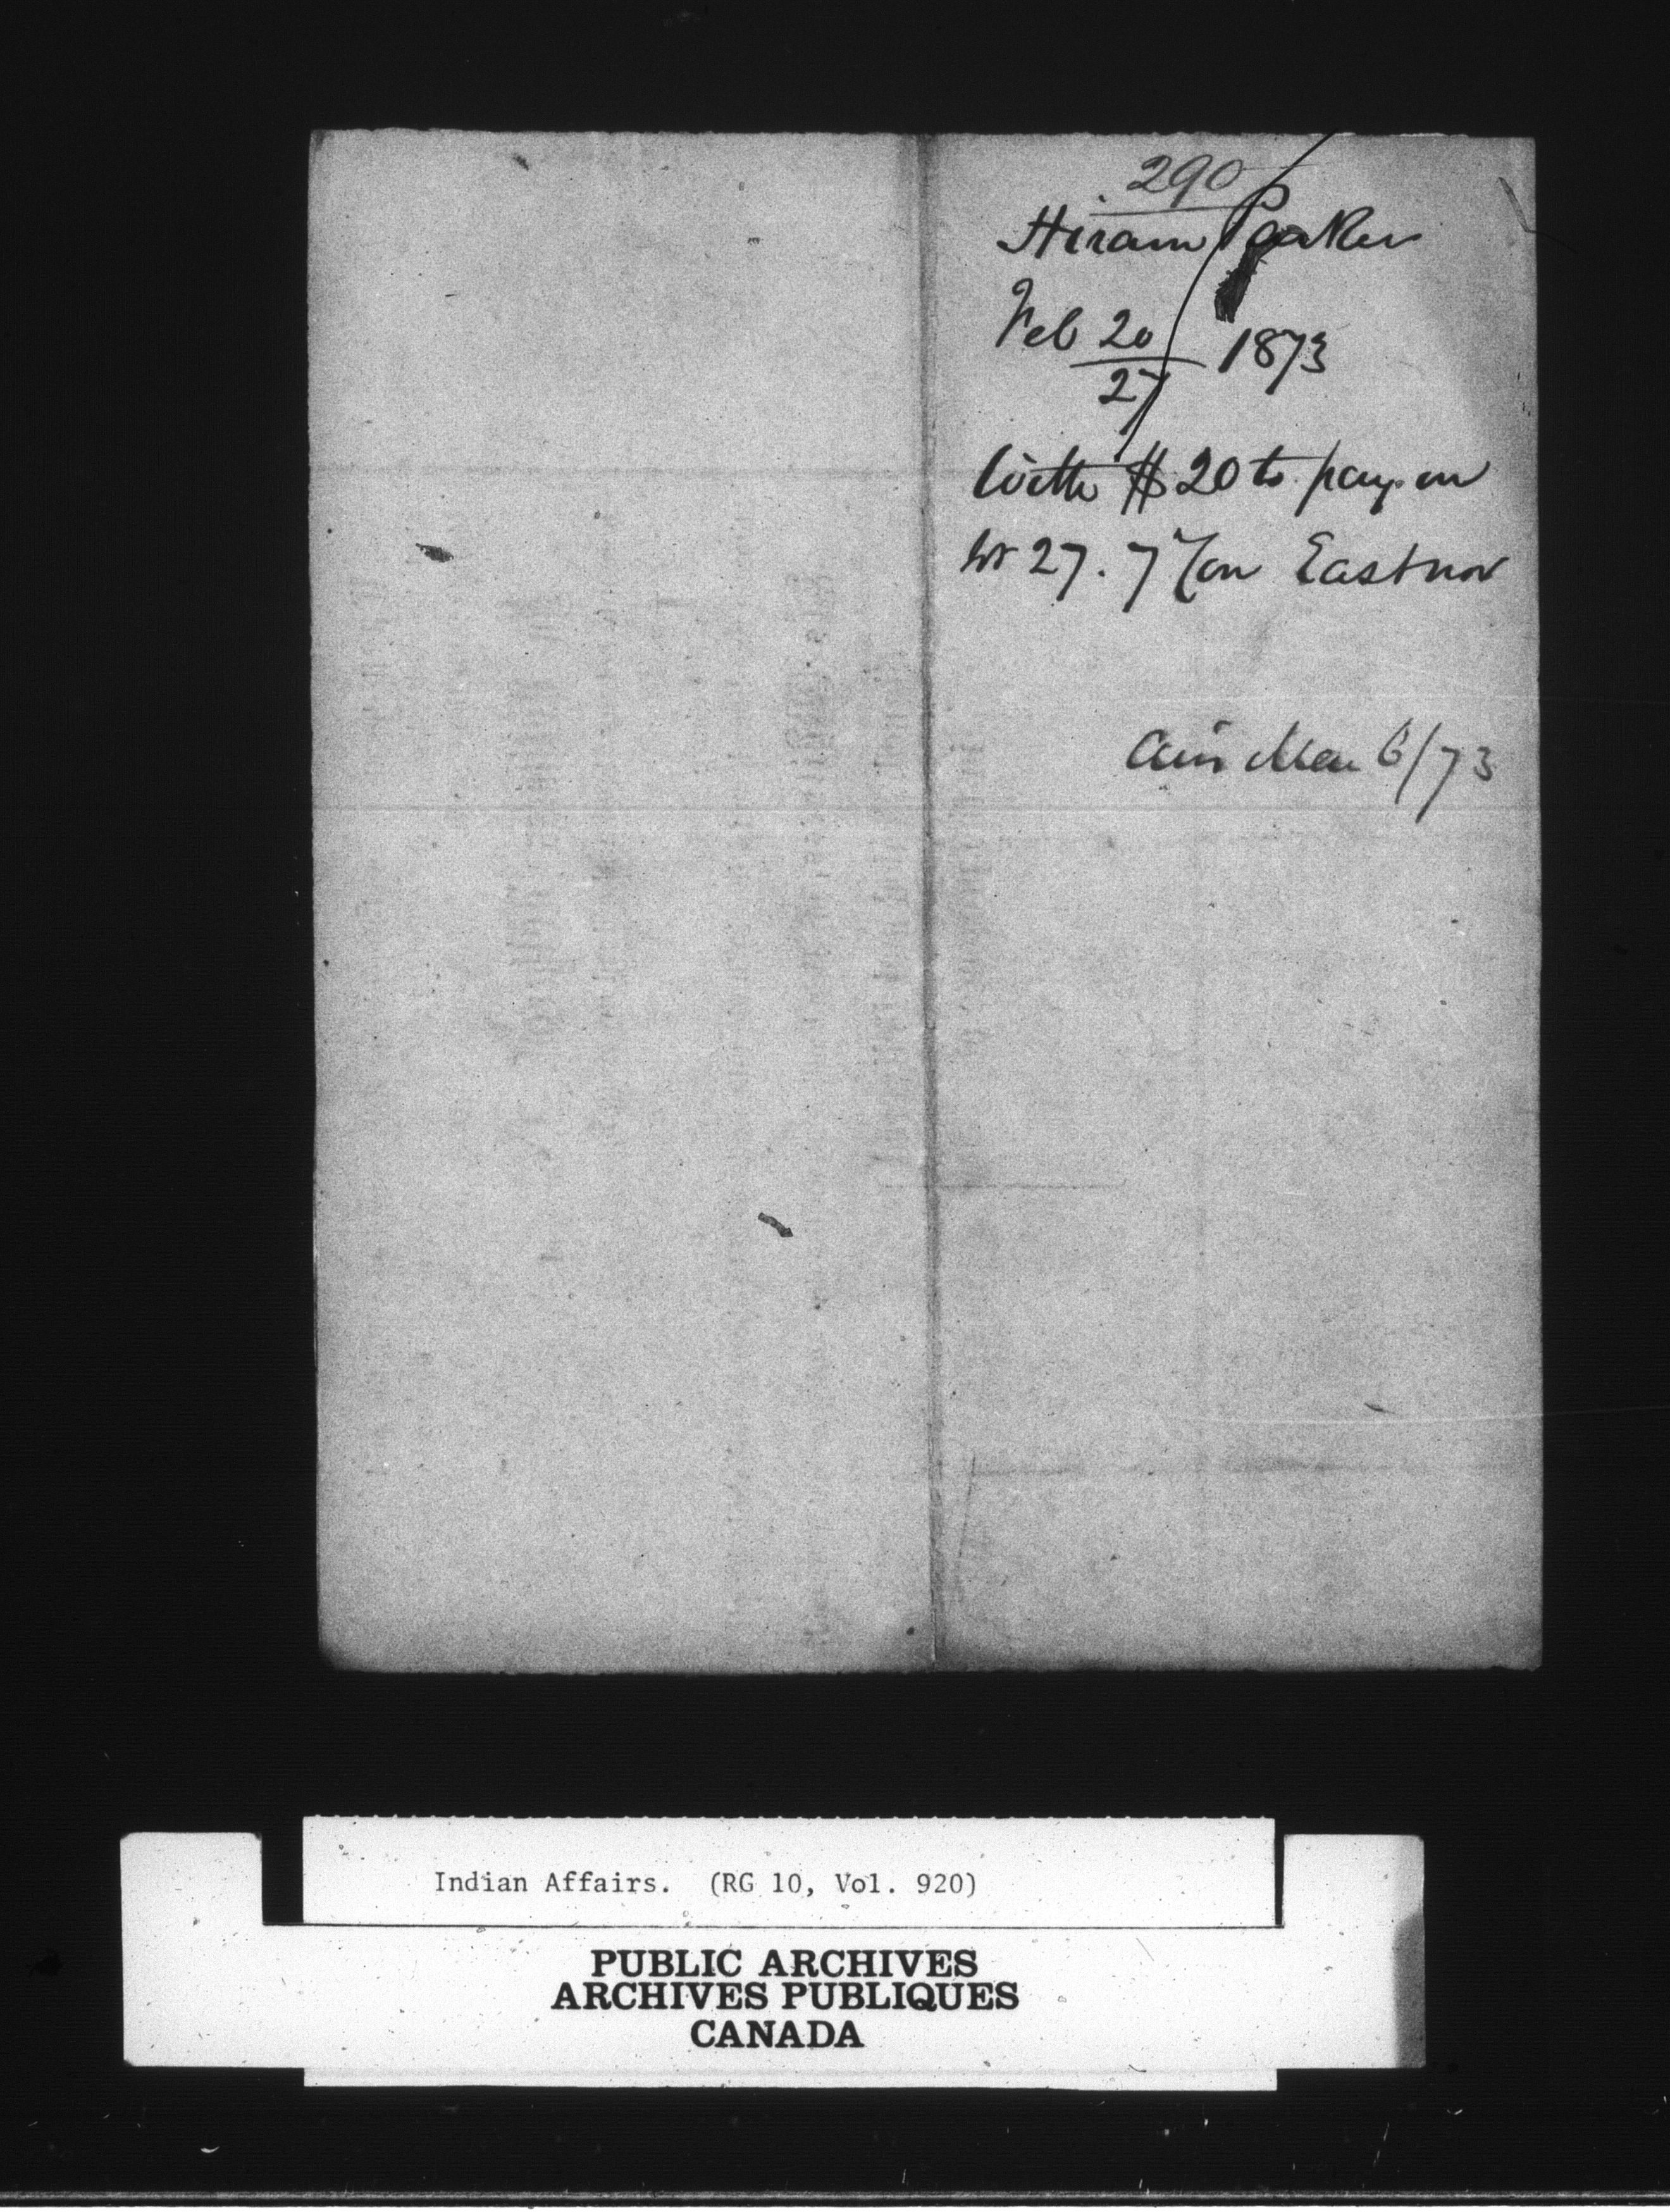 290
Hiram Parker
Feb 20/27 1873
With $20 to pay on
Lot 27. 7 Con Eastnor
Mar 6/73
Indian Affairs. (RG 10, Vol. 920)
PUBLIC ARCHIVES
ARCHIVES PUBLIQUES
CANADA